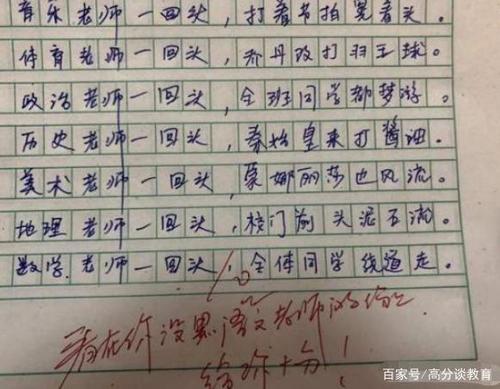 音乐老师一回头，打着节拍晃着头。
体育老师一回头，乔丹改打羽毛球。
政治老师一回头，全班同学都梦游。
历史老师一回头，秦始皇来打酱油。
美术老师一回头，蒙娜丽莎也风流。
地理老师一回头，校门前头泥石流。
数学老师一回头，全体同学绕道走。
10
看在你没黑语文老师的份上
给你十分！
百家号/高分谈教育